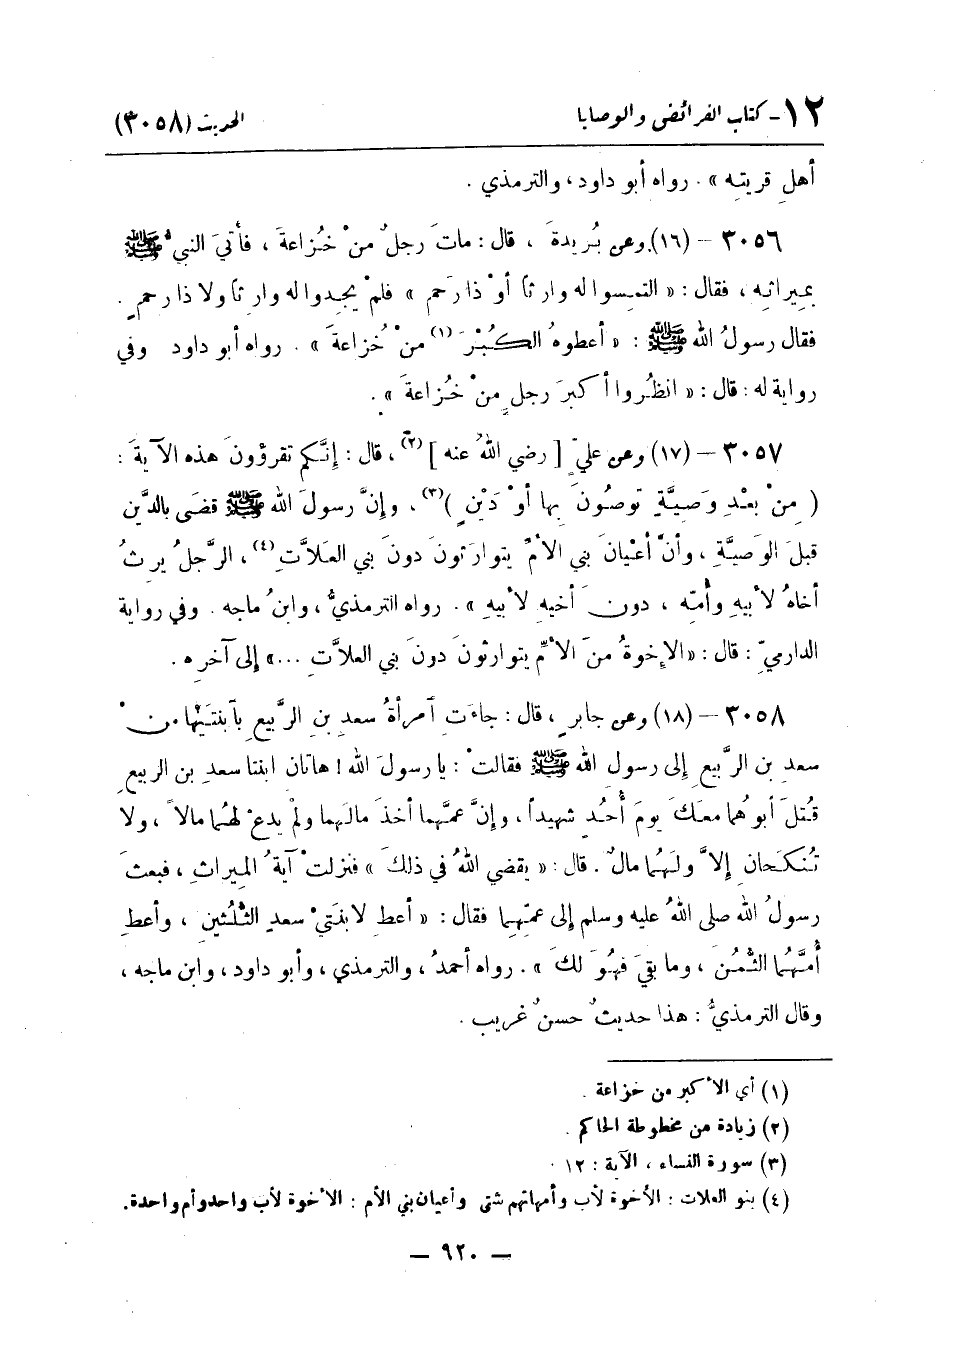 ١٢- كتاب الفرائض والوصايا الحديث (٣٠٥٨)
أهلِ قريتِه » . رواه أبو داود، والترمذي .
٣٠٥٦ – (١٦) وعن بُريدةَ ، قال : ماتَ رجلٌ منْ خُزاعةَ ، فأتيَ النبيُّ ﷺ
بميراثِه ، فقال : « التمِسوا له وارثاً أوْ ذا رَحم » فلمْ يجِدوا له وارثاً ولا ذا رحمٍ .
فقال رسولُ الله ﷺ : « أعطوهُ الكُبْرَ (١) منْ خُزاعةَ » . رواه أبو داود وفي
رواية له : قال : « انظُروا أكبرَ رجلٍ منْ خُزاعةَ » .
٣٠٥٧ – (١٧) وعن عليٍّ [ رضي اللهُ عنه ] (٢) ، قال : إنَّكم تقرؤونَ هذه الآيةَ :
( مِنْ بعْدِ وَصيَّةٍ توصُونَ بِها أوْ دَيْنٍ ) (٣) ، وإنَّ رسولَ الله ﷺ قضَى بالدَّين
قبلَ الوَصيَّةِ ، وأنَّ أعْيانَ بني الأمِّ يتوارَثونَ دونَ بني العَلاَّتِ (٤) ، الرَّجلُ يرِثُ
أخاهُ لأبيهِ وأُمِّه ، دونَ أخيهِ لأبيهِ » . رواه الترمذيُّ ، وابنُ ماجه . وفي رواية
الدارميِّ : قال : «الإخوةُ منَ الأمِّ يتوارثونَ دونَ بني العلاَّتِ ...» إلى آخرِه .
٣٠٥٨ – (١٨) وعن جابرٍ ، قال : جاءَتِ آمرأةُ سعدِ بنِ الرَّبيعِ بآبنتَيْها منْ
سعدِ بن الرَّبيعِ إلى رسول الله ﷺ فقالتْ : يا رسولَ الله ! هاتان ابنتا سعدِ بن الربيعِ
قُتلَ أبوهُما معَكَ يومَ أُحُدٍ شهيداً ، وإنَّ عمَّهما أخذَ مالَهما ولمْ يدعْ لهُما مالاً ، ولا
تُنكَحانِ إلاَّ ولَهُما مالٌ . قال : « يقضي اللهُ في ذلكَ » فنزلتْ آيةُ الميراثِ ، فبعثَ
رسولُ الله صلى اللهُ عليه وسلم إلى عمِّهما فقال : « أعطِ لابنَتيْ سعدٍ الثُّلُثينِ ، وأعطِ
أُمَّهُما الثُّمُنَ ، وما بقيَ فهُوَ لكَ » . رواه أحمدُ ، والترمذي ، وأبو داود ، وابن ماجه ،
وقال الترمذيُّ : هذا حديثٌ حسنٌ غريب .
(١) أي الأكبر من خزاعة .
(٢) زيادة من مخطوطة الحاكم .
(٣) سورة النساء ، الآية : ١٢ .
(٤) بنو العلات : الأخوة لأب وأمهاتهم شتى وأعيان بني الأم : الأخوة لأب واحد وأم واحدة.
— ٩٢٠ —